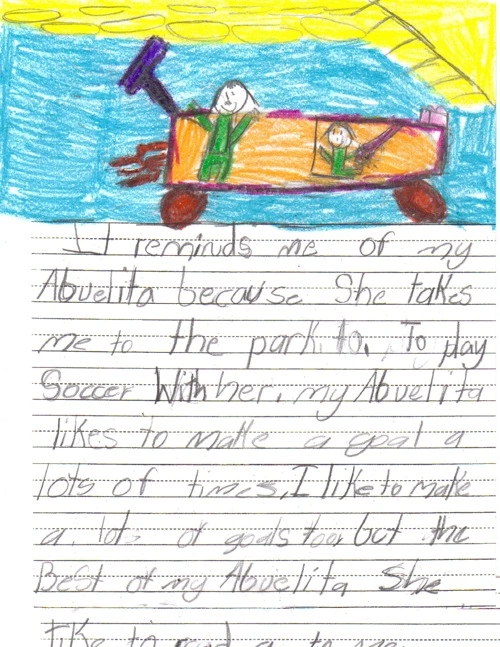 It reminds me of my
Abuelita because She takes
me to the park to. To play
Soccer With her. my Abuelita
likes to make a goal a
lots of times, I like to make
a. lots of goals too, but the
Best of my Abuelita She
like to read to me.